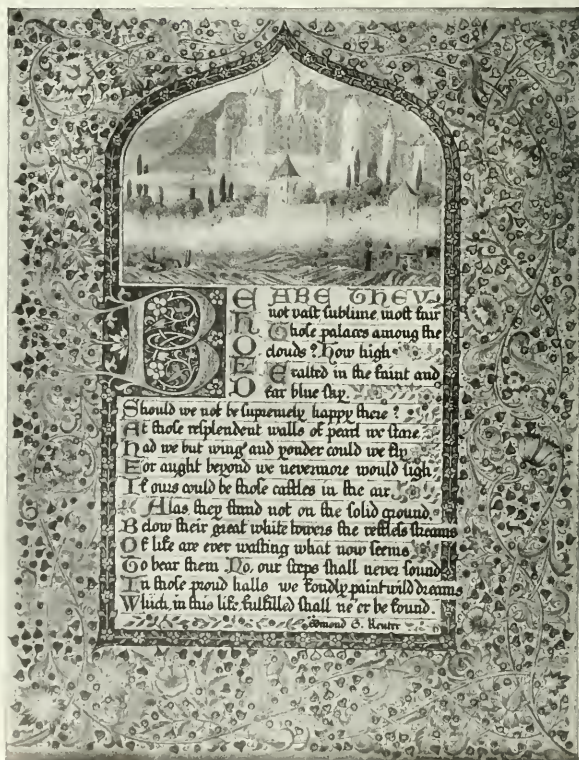 BEHOLD
ARE THEY
not vast sublime, most fair
Those palaces among the
clouds? How high
Exalted in the faint and
far blue sky.
Should we not be supremely happy there?
At those resplendent walls of pearl we stare
Had we but wings and yonder could we fly
For aught beyond we nevermore would sigh
If ours could be those castles in the air
Alas, they stand not on the solid ground.
Below their great white towers the restless streams
Of life are ever wasting what now seems
To bear them No, our steps shall never sound
In those proud halls we fondly paint wild dreams
Which, in this life, fulfilled shall ne'er be found.
Edmond G. Reuter